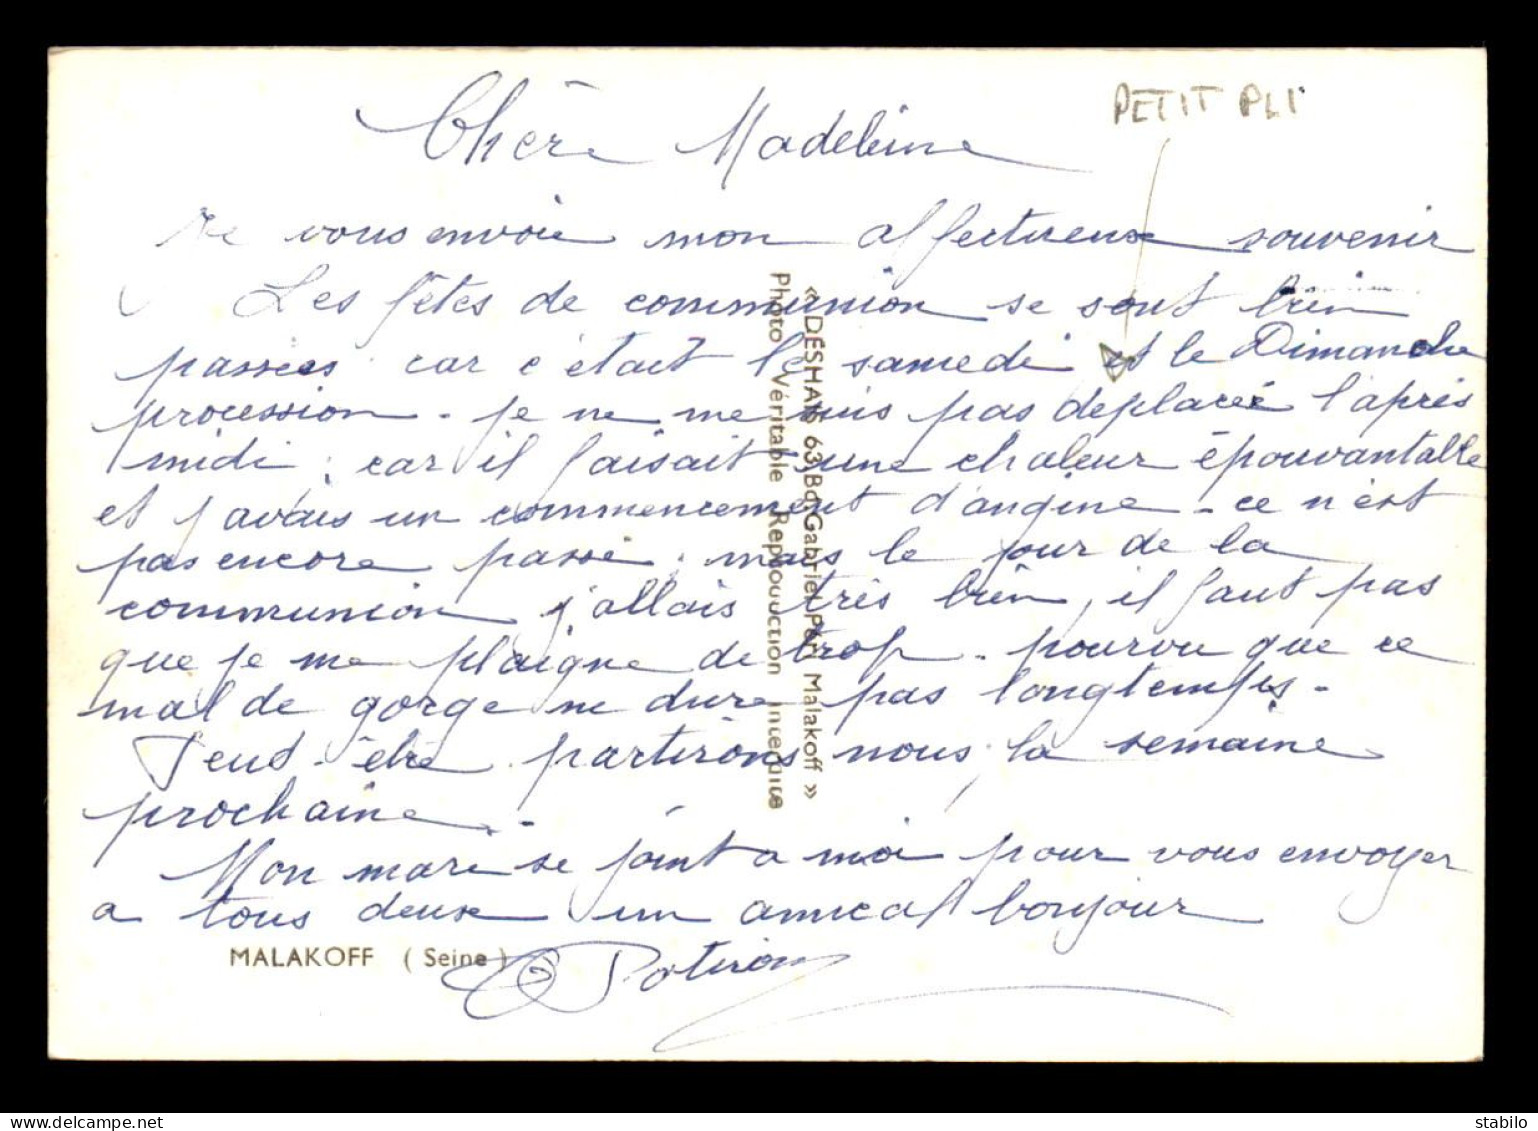 PETIT PLI
Chère Madeleine
Je vous envoie mon affectueux souvenir
Les fêtes de communion se sont bien
passées car c'était le samedi et le Dimanche
procession - je ne me suis pas deplacée l'après
midi ; car il faisait une chaleur épouvantable
et j'avais un commencement d'angine - ce n'est
pas encore passé ; mais le jour de la
communion j'allais très bien, il faut pas
que je me plaigne de trop - pourvu que ce
mal de gorge ne dure pas longtemps -
Peut-être partirons nous, la semaine
prochaine -
Mon mari se joint a moi pour vous envoyer
a tous deux un amical bonjour
Potiron
MALAKOFF ( Seine )
« DESHAIS 63, Bd. Gabriel Péri Malakoff »
Photo Véritable Reproduction Interdite
stabilo
delcampe.net